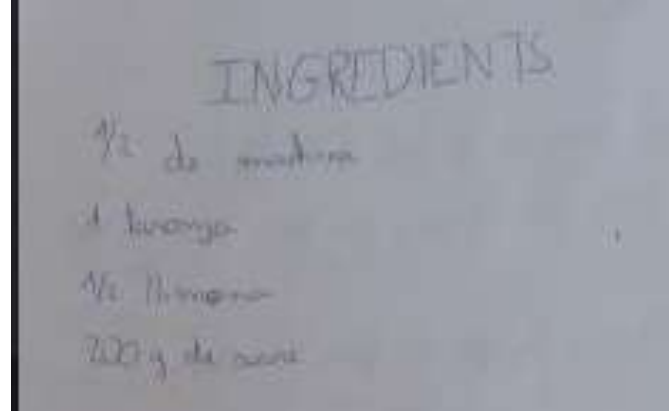 INGREDIENTS
1/2 de
1 taronja
1/2 llimona
200 g de